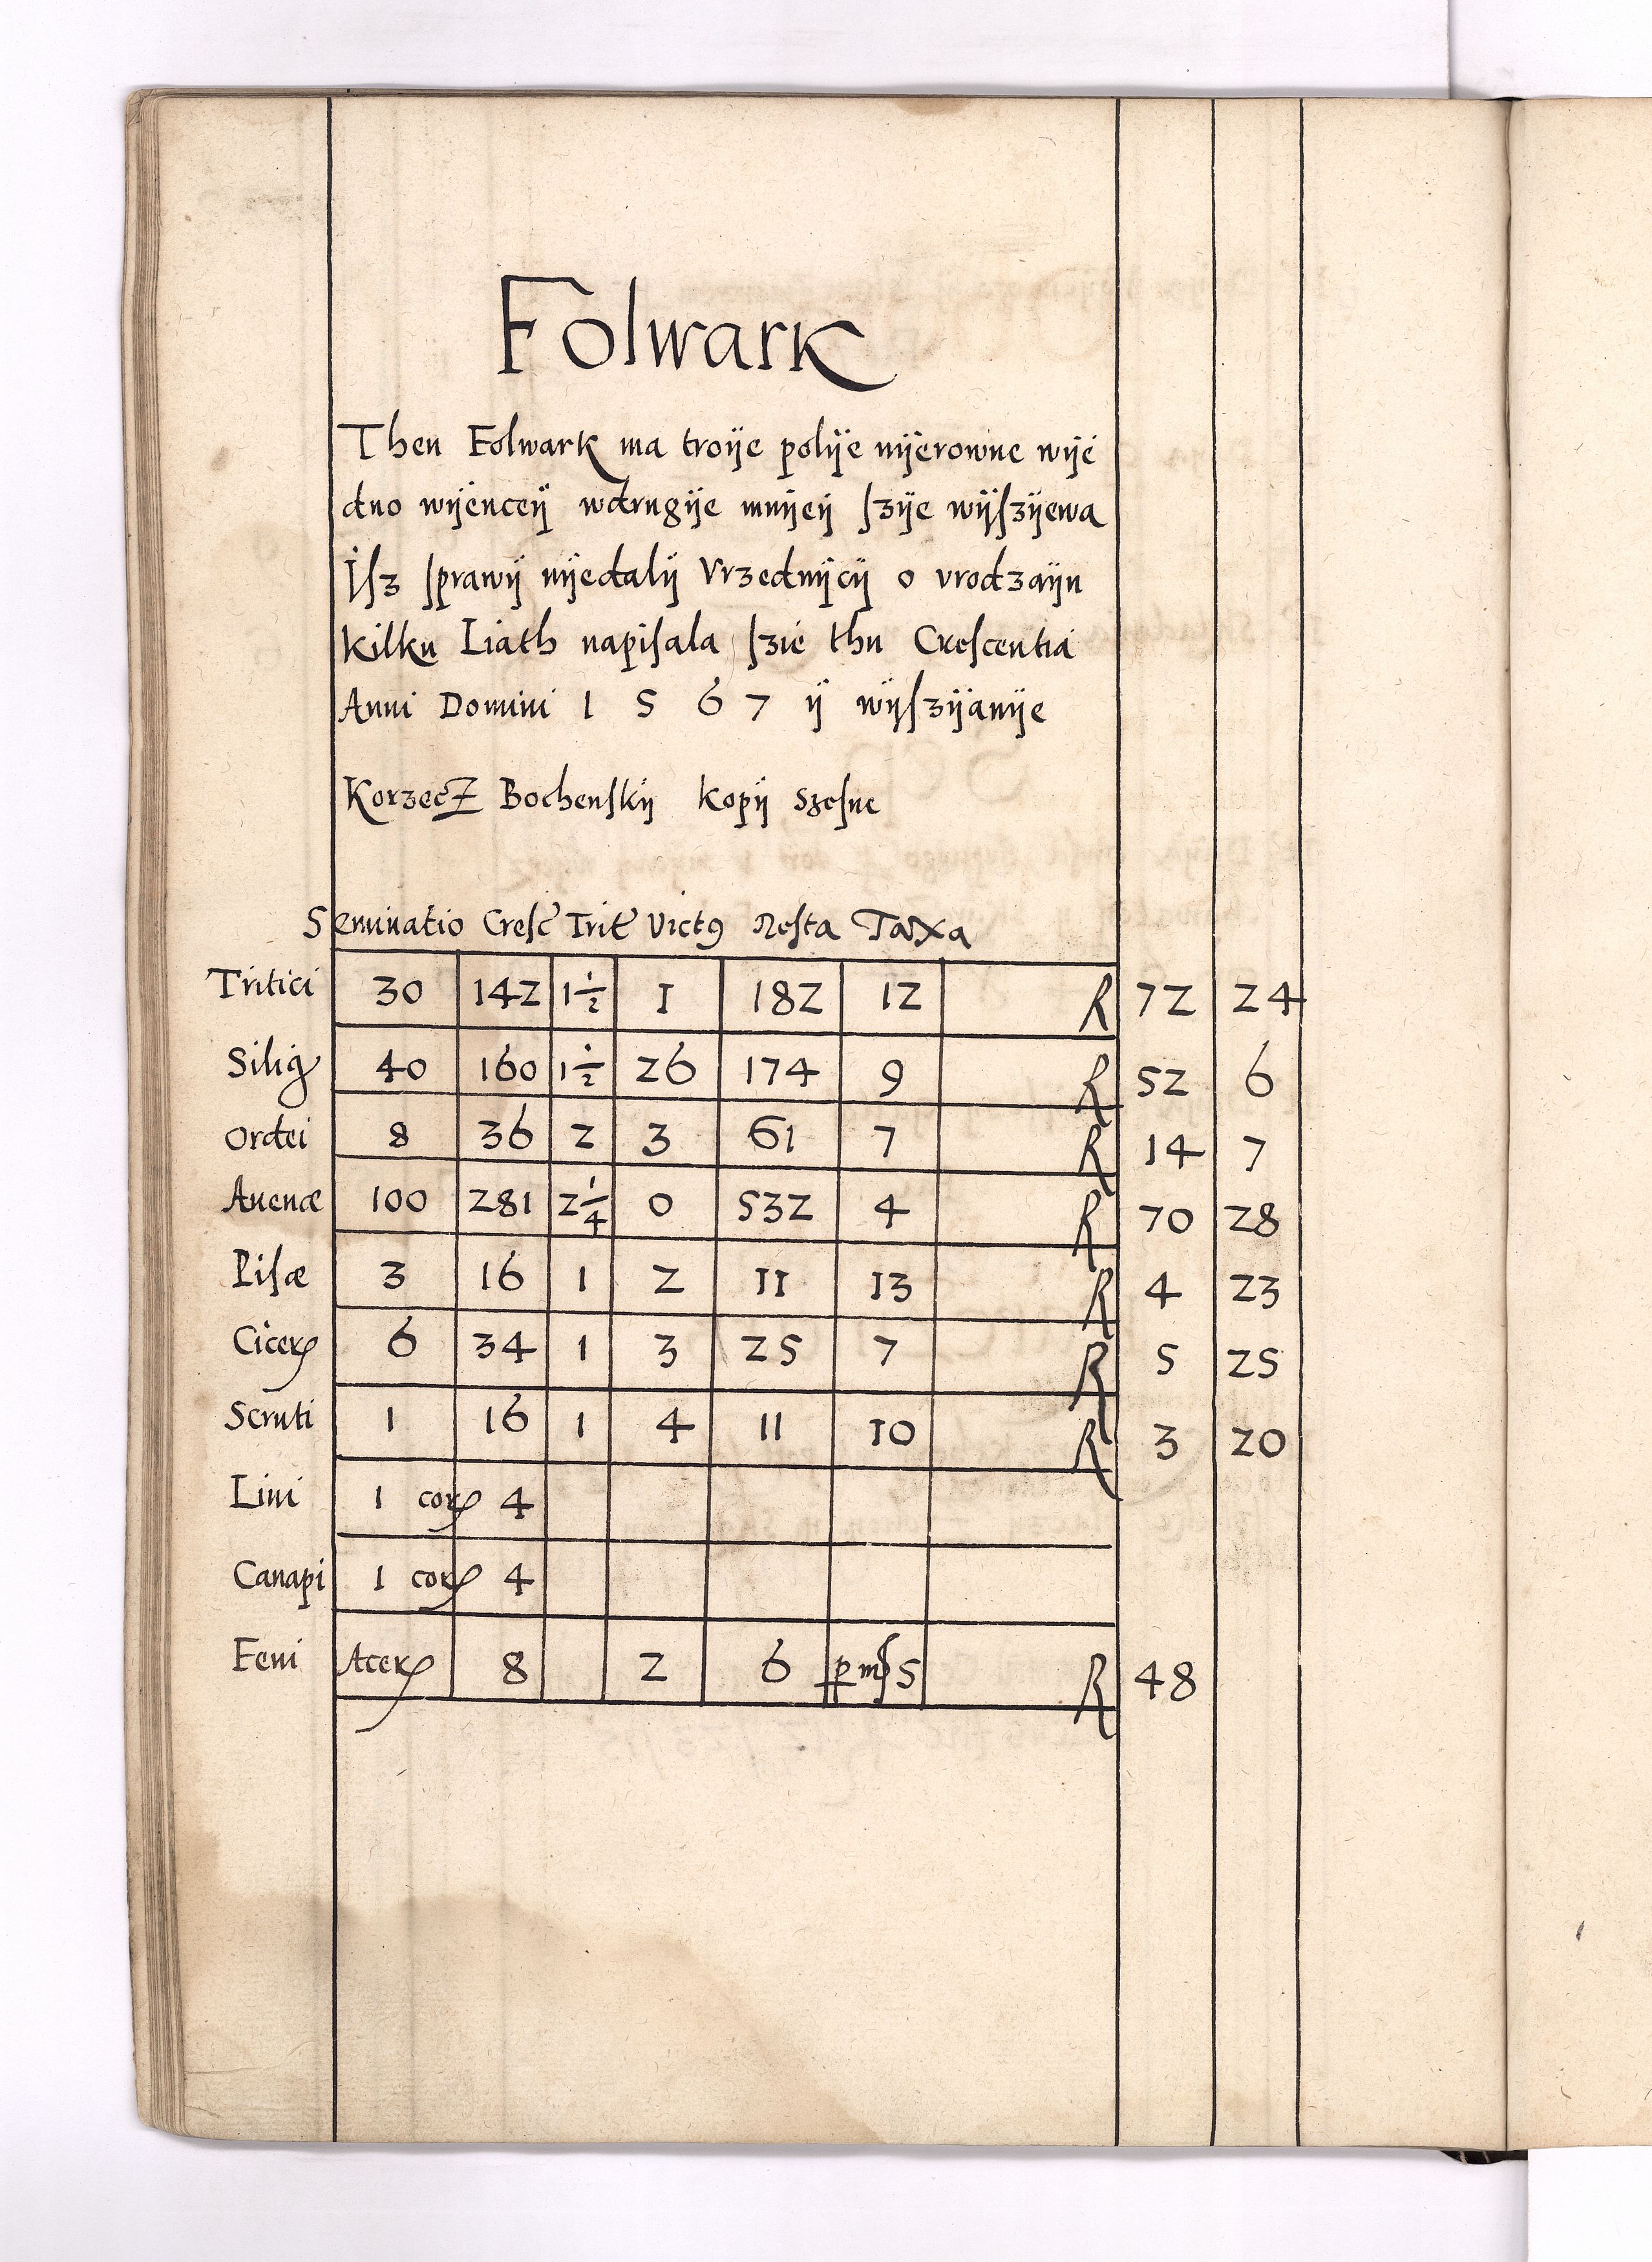 Folwark
Then Folwark ma troÿe polÿe nÿerowne wÿe
dno wÿenceÿ wdrugÿe mnÿeÿ ſzÿe wÿſzÿewa
Jſz ſprawÿ nÿedalÿ Vrzednÿcÿ o vrodzaÿu
kilku Liath napiſala ſzie thu Creſcentia
Anni Domini 1 5 6 7 ÿ wÿſzÿanÿe
Korzecz Bochenſkÿ kopÿ szeſne
Seminatio Creſc Trit Vict9 Reſta Taxa
Tritici 30 142 1 1/2 1 182 12 R 72 24
Silig 40 160 1 1/2 26 174 9 R 52 6
Ordei 8 36 2 3 61 7 R 14 7
Auenæ 100 281 2 1/4 0 532 4 R 70 28
Piſæ 3 16 1 2 11 13 R 4 23
Ciceꝝ 6 34 1 3 25 7 R 5 25
Scruti 1 16 1 4 11 10 R 3 20
Lini 1 corꝝ 4
Canapi 1 corꝝ 4
Feni Aceꝝ 8 2 6 5 R 48